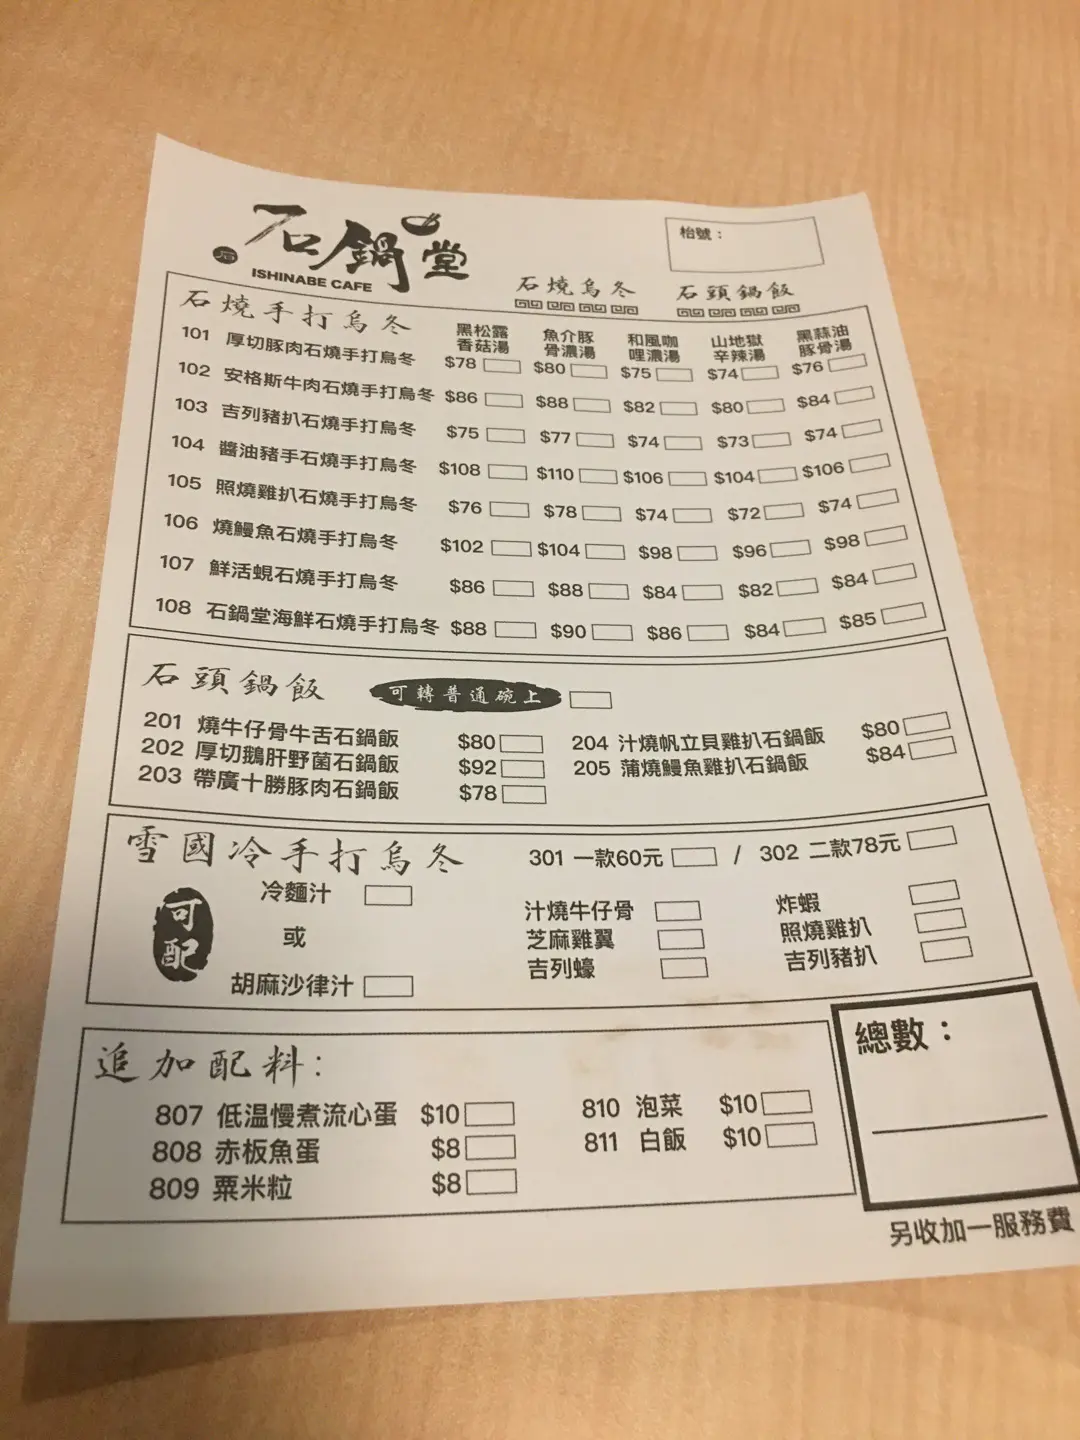 石鍋堂
ISHINABE CAFE
枱號：
石燒烏冬 石頭鍋飯
石燒手打烏冬
黑松露香菇湯 魚介豚骨濃湯 和風咖哩濃湯 山地獄辛辣湯 黑蒜油豚骨湯
101 厚切豚肉石燒手打烏冬 $78 $80 $75 $74 $76
102 安格斯牛肉石燒手打烏冬 $86 $88 $82 $80 $84
103 吉列豬扒石燒手打烏冬 $75 $77 $74 $73 $74
104 醬油豬手石燒手打烏冬 $108 $110 $106 $104 $106
105 照燒雞扒石燒手打烏冬 $76 $78 $74 $72 $74
106 燒鰻魚石燒手打烏冬 $102 $104 $98 $96 $98
107 鮮活蜆石燒手打烏冬 $86 $88 $84 $82 $84
108 石鍋堂海鮮石燒手打烏冬 $88 $90 $86 $84 $85
石頭鍋飯 可轉普通碗上
201 燒牛仔骨牛舌石鍋飯 $80 204 汁燒帆立貝雞扒石鍋飯 $80
202 厚切鵝肝野菌石鍋飯 $92 205 蒲燒鰻魚雞扒石鍋飯 $84
203 帶廣十勝豚肉石鍋飯 $78
雪國冷手打烏冬 301 一款60元 / 302 二款78元
可配
冷麵汁
或
胡麻沙律汁
汁燒牛仔骨 炸蝦
芝麻雞翼 照燒雞扒
吉列蠔 吉列豬扒
追加配料:
807 低温慢煮流心蛋 $10 810 泡菜 $10
808 赤板魚蛋 $8 811 白飯 $10
809 粟米粒 $8
總數：
另收加一服務費